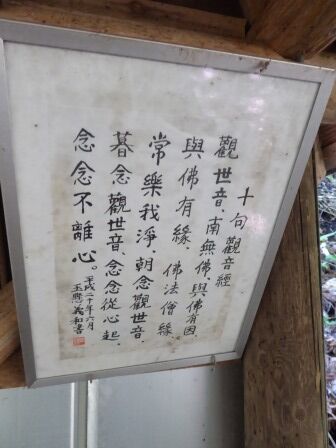 十句觀音經
觀世音、南無佛、與佛有因、
與佛有緣、佛法僧緣、
常樂我淨、朝念觀世音、
暮念觀世音、念念從心起、
念念不離心。
平成二十年六月
義和書